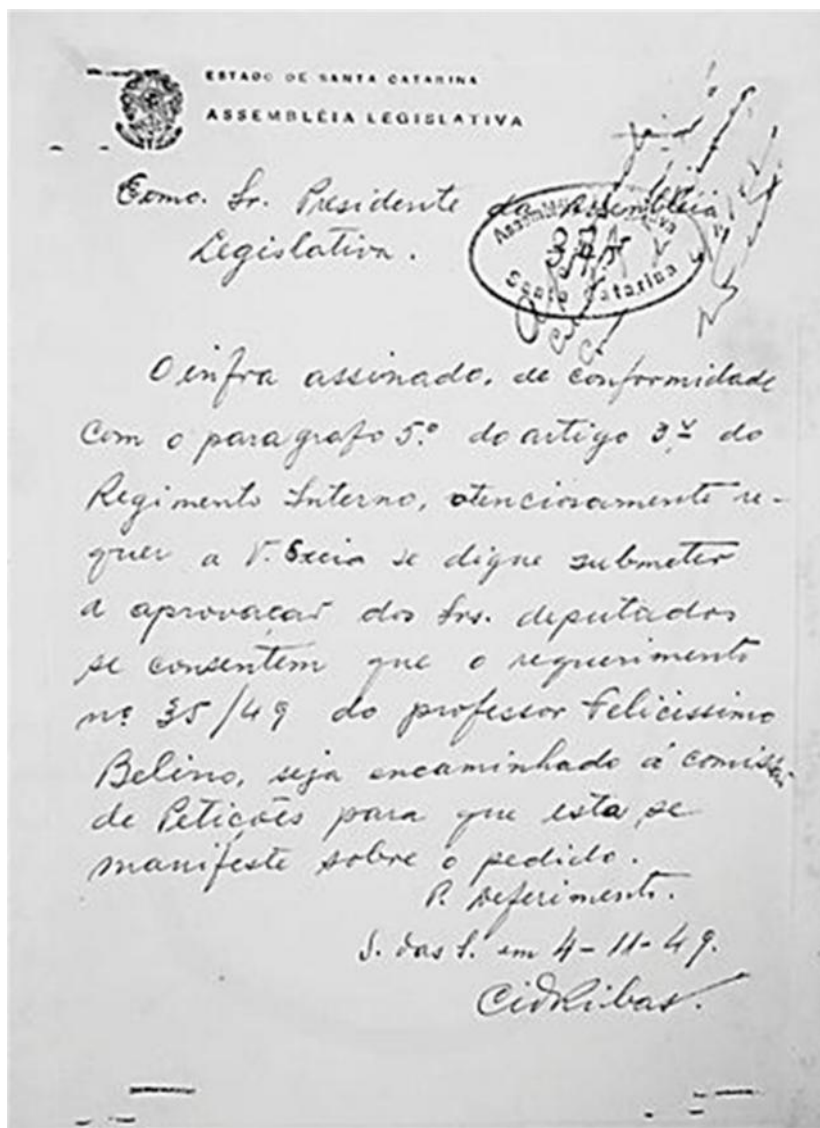 ESTADO DE SANTA CATARINA
ASSEMBLÉIA LEGISLATIVA
Exmo. Sr. Presidente da Assembléia
Legislativa.
Assembléia Legislativa
Santa Catarina
O infra assinado, de conformidade
com o paragrafo 5º do artigo 3º do
Regimento Interno, atenciosamente re-
quer a V. Excia se digne submeter
a aprovação dos Srs. deputados
se consentem que o requerimento
nº 35/49 do professor Felicissimo
Belino, seja encaminhado á comissão
de Petições para que esta se
manifeste sobre o pedido.
P. Deferimento.
S. das S. em 4-11-49.
Cid Ribas.